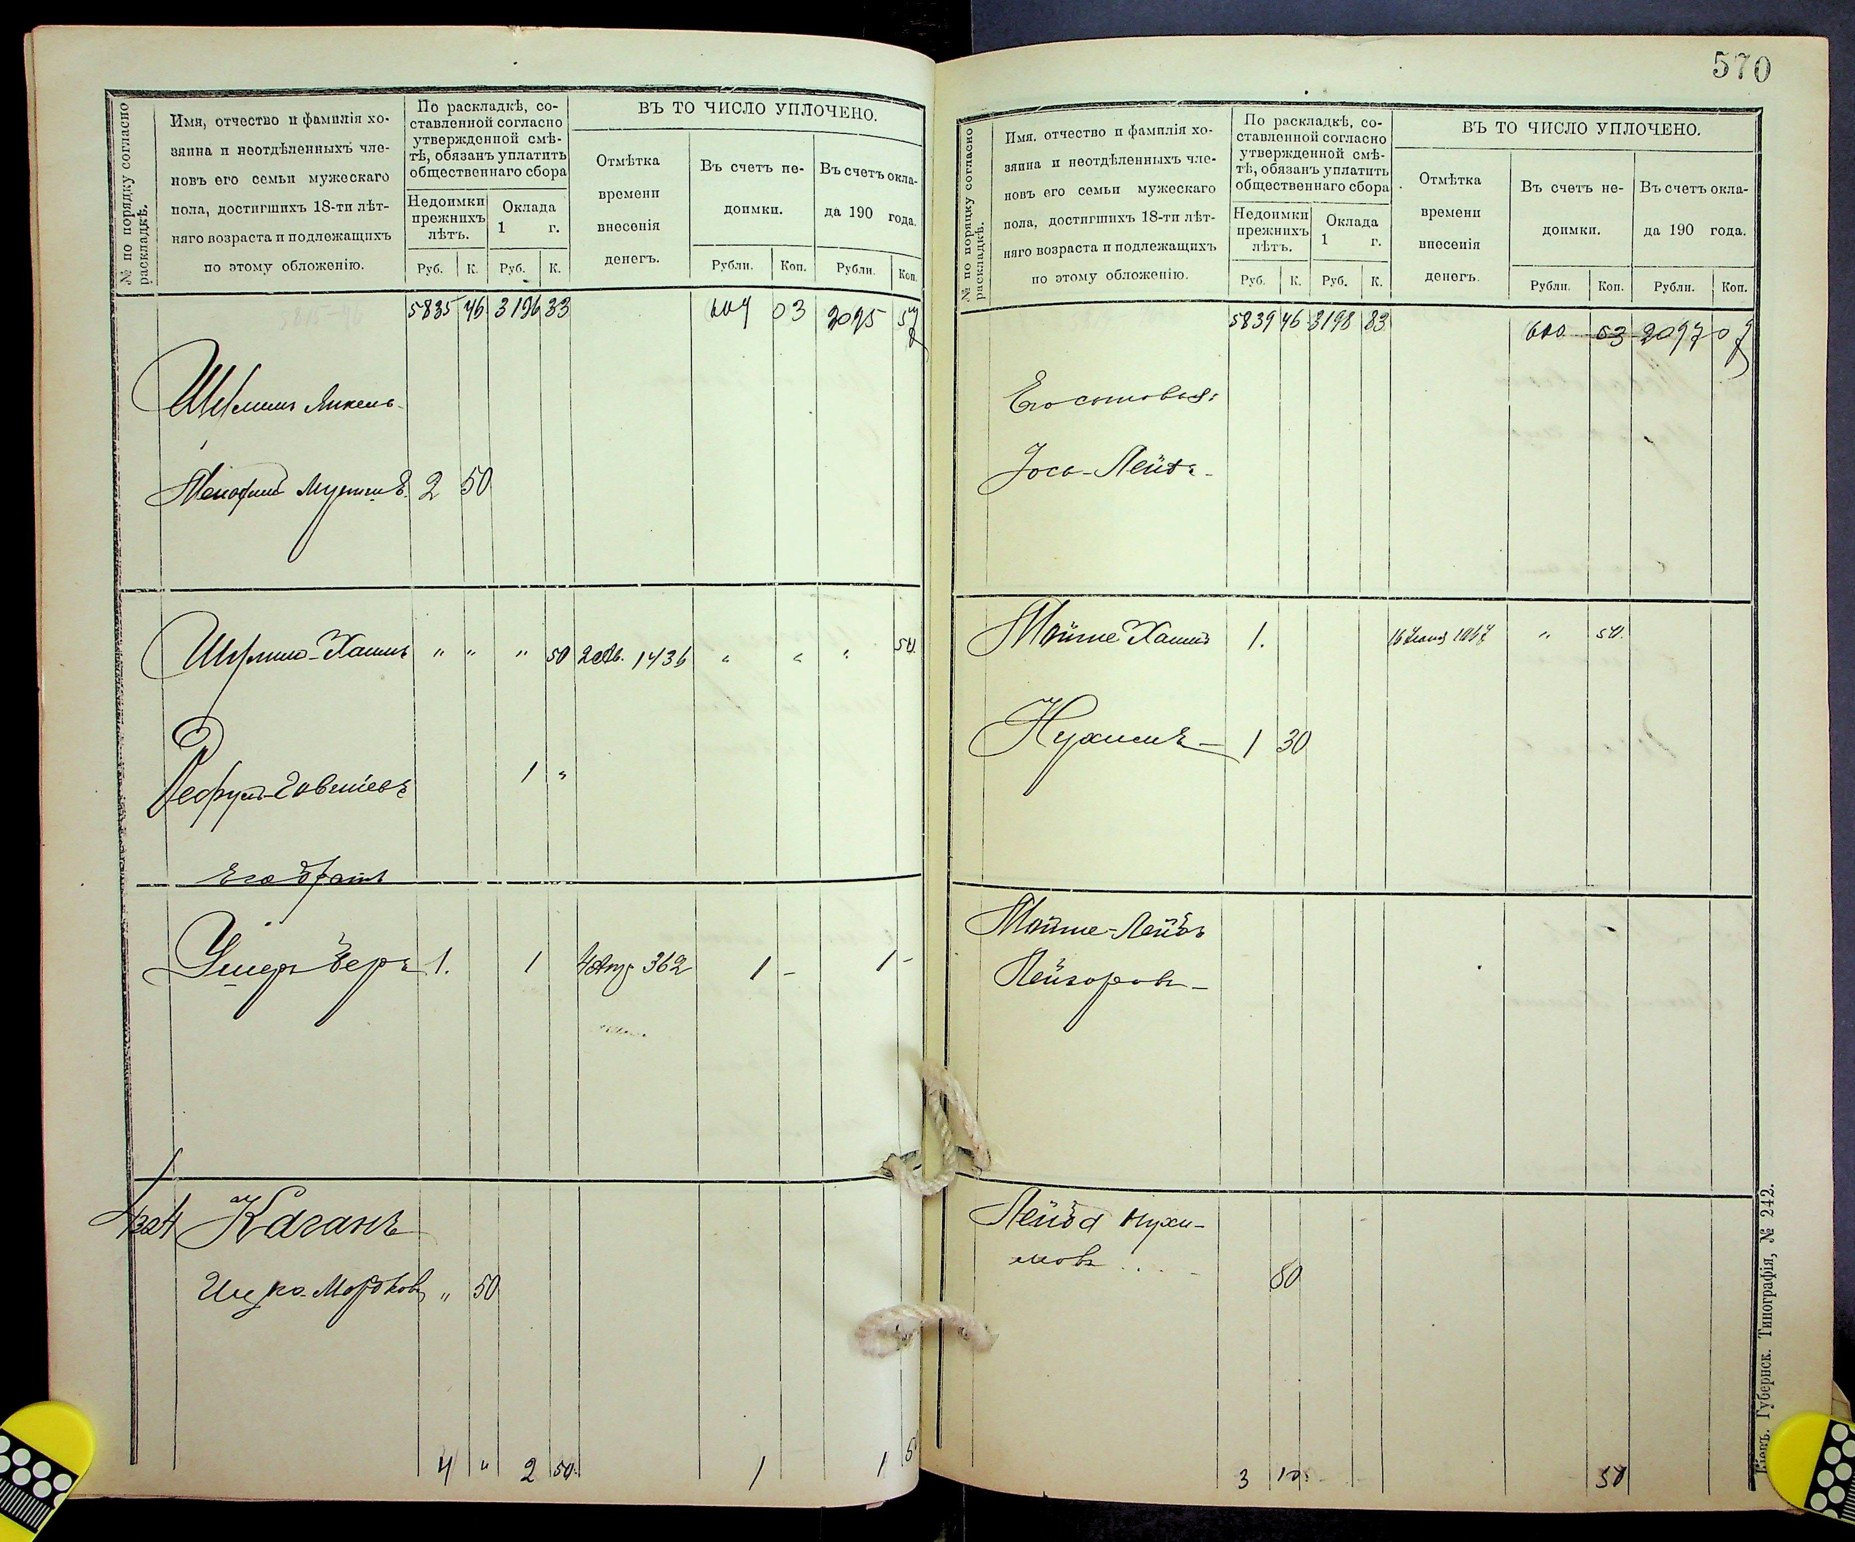 № по порядку согласно раскладкѣ.
Имя, отчество и фамилія хо-
зяина и неотдѣленныхъ чле-
новъ его семьи мужескаго
пола, достигшихъ 18-ти лѣт-
няго возраста и подлежащихъ
по этому обложенію.
По раскладкѣ, со-
ставленной согласно
утвержденной смѣ-
тѣ, обязанъ уплатить
общественнаго сбора
Недоимки
прежнихъ
лѣтъ.
Оклада
1 г.
Руб. К. Руб. К.
ВЪ ТО ЧИСЛО УПЛОЧЕНО.
Отмѣтка
времени
внесенія
денегъ.
Въ счетъ не-
доимки.
Рубли. Коп.
Въ счетъ окла-
да 190 года.
Рубли. Коп.
5835 46 3196 33 03 2095 57
Янкель
2 50
Хаимъ " " " 50 1436 " " " 50
1 "
его братъ
Беръ 1. 1 362 1 - 1 -
Каганъ
Ицко Мордковъ " 50
4 " 2 50 1 1 5
570
№ по порядку согласно раскладкѣ.
Имя, отчество и фамилія хо-
зяина и неотдѣленныхъ чле-
новъ его семьи мужескаго
пола, достигшихъ 18-ти лѣт-
няго возраста и подлежащихъ
по этому обложенію.
По раскладкѣ, со-
ставленной согласно
утвержденной смѣ-
тѣ, обязанъ уплатить
общественнаго сбора
Недоимки
прежнихъ
лѣтъ.
Оклада
1 г.
Руб. К. Руб. К.
ВЪ ТО ЧИСЛО УПЛОЧЕНО.
Отмѣтка
времени
внесенія
денегъ.
Въ счетъ не-
доимки.
Рубли. Коп.
Въ счетъ окла-
да 190 года.
Рубли. Коп.
5839 46 3198 83 03 2097 07
Его сыновья:
Лейба -
Мойше Хаимъ 1. " 50.
Нухимъ - 1 30
Мойше-Лейбъ
Лейба Нухи-
мовъ . . . - 80
3 10 50
Кіевъ. Губернск. Типографія, № 242.